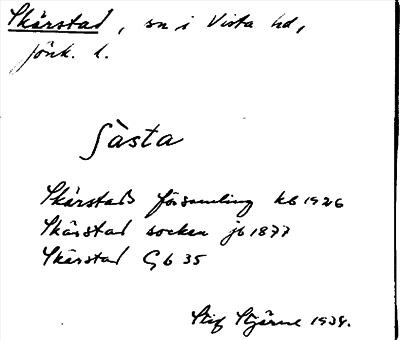 Skärstad, sn i Vista hd,
Jönk. l.
Sàsta
Skärstads församling kb 1926
Skärstad socken jb 1877
Skärstad Gb 35
Stig Stjärne 1939.